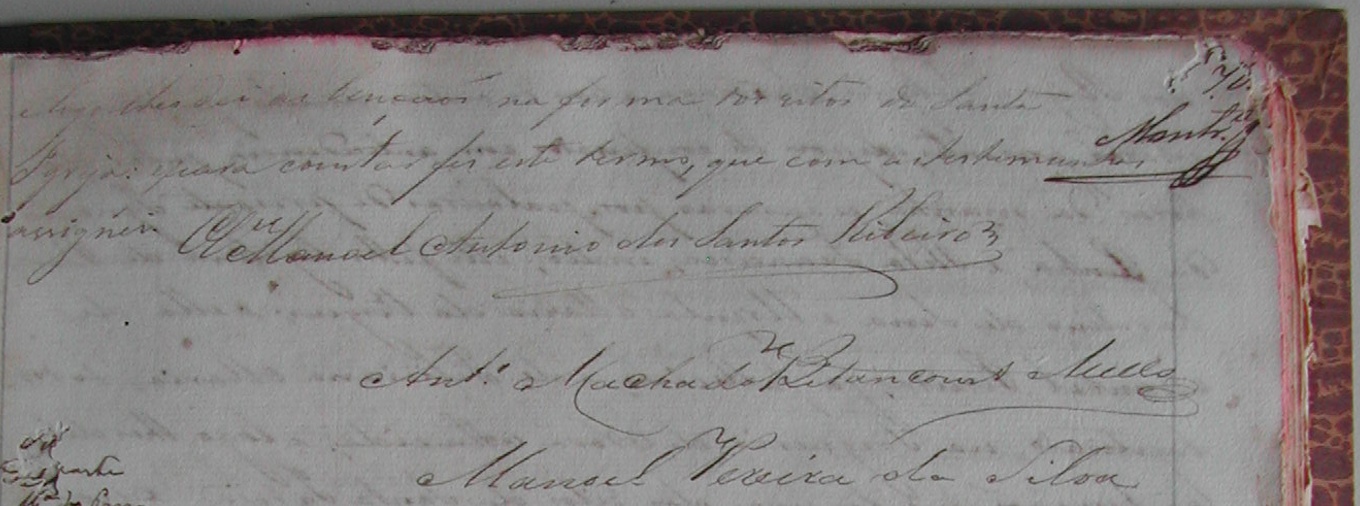 70
logo lhes dei as bençaõs na forma dos ritos da Santa
Igreja: e para constar fiz este termo, que com as testemunhas
assignei. O Manoel Antonio dos Santos Ribeiro
Ant.º Machado Bitancourt Mello
Manoel Pereira da Silva